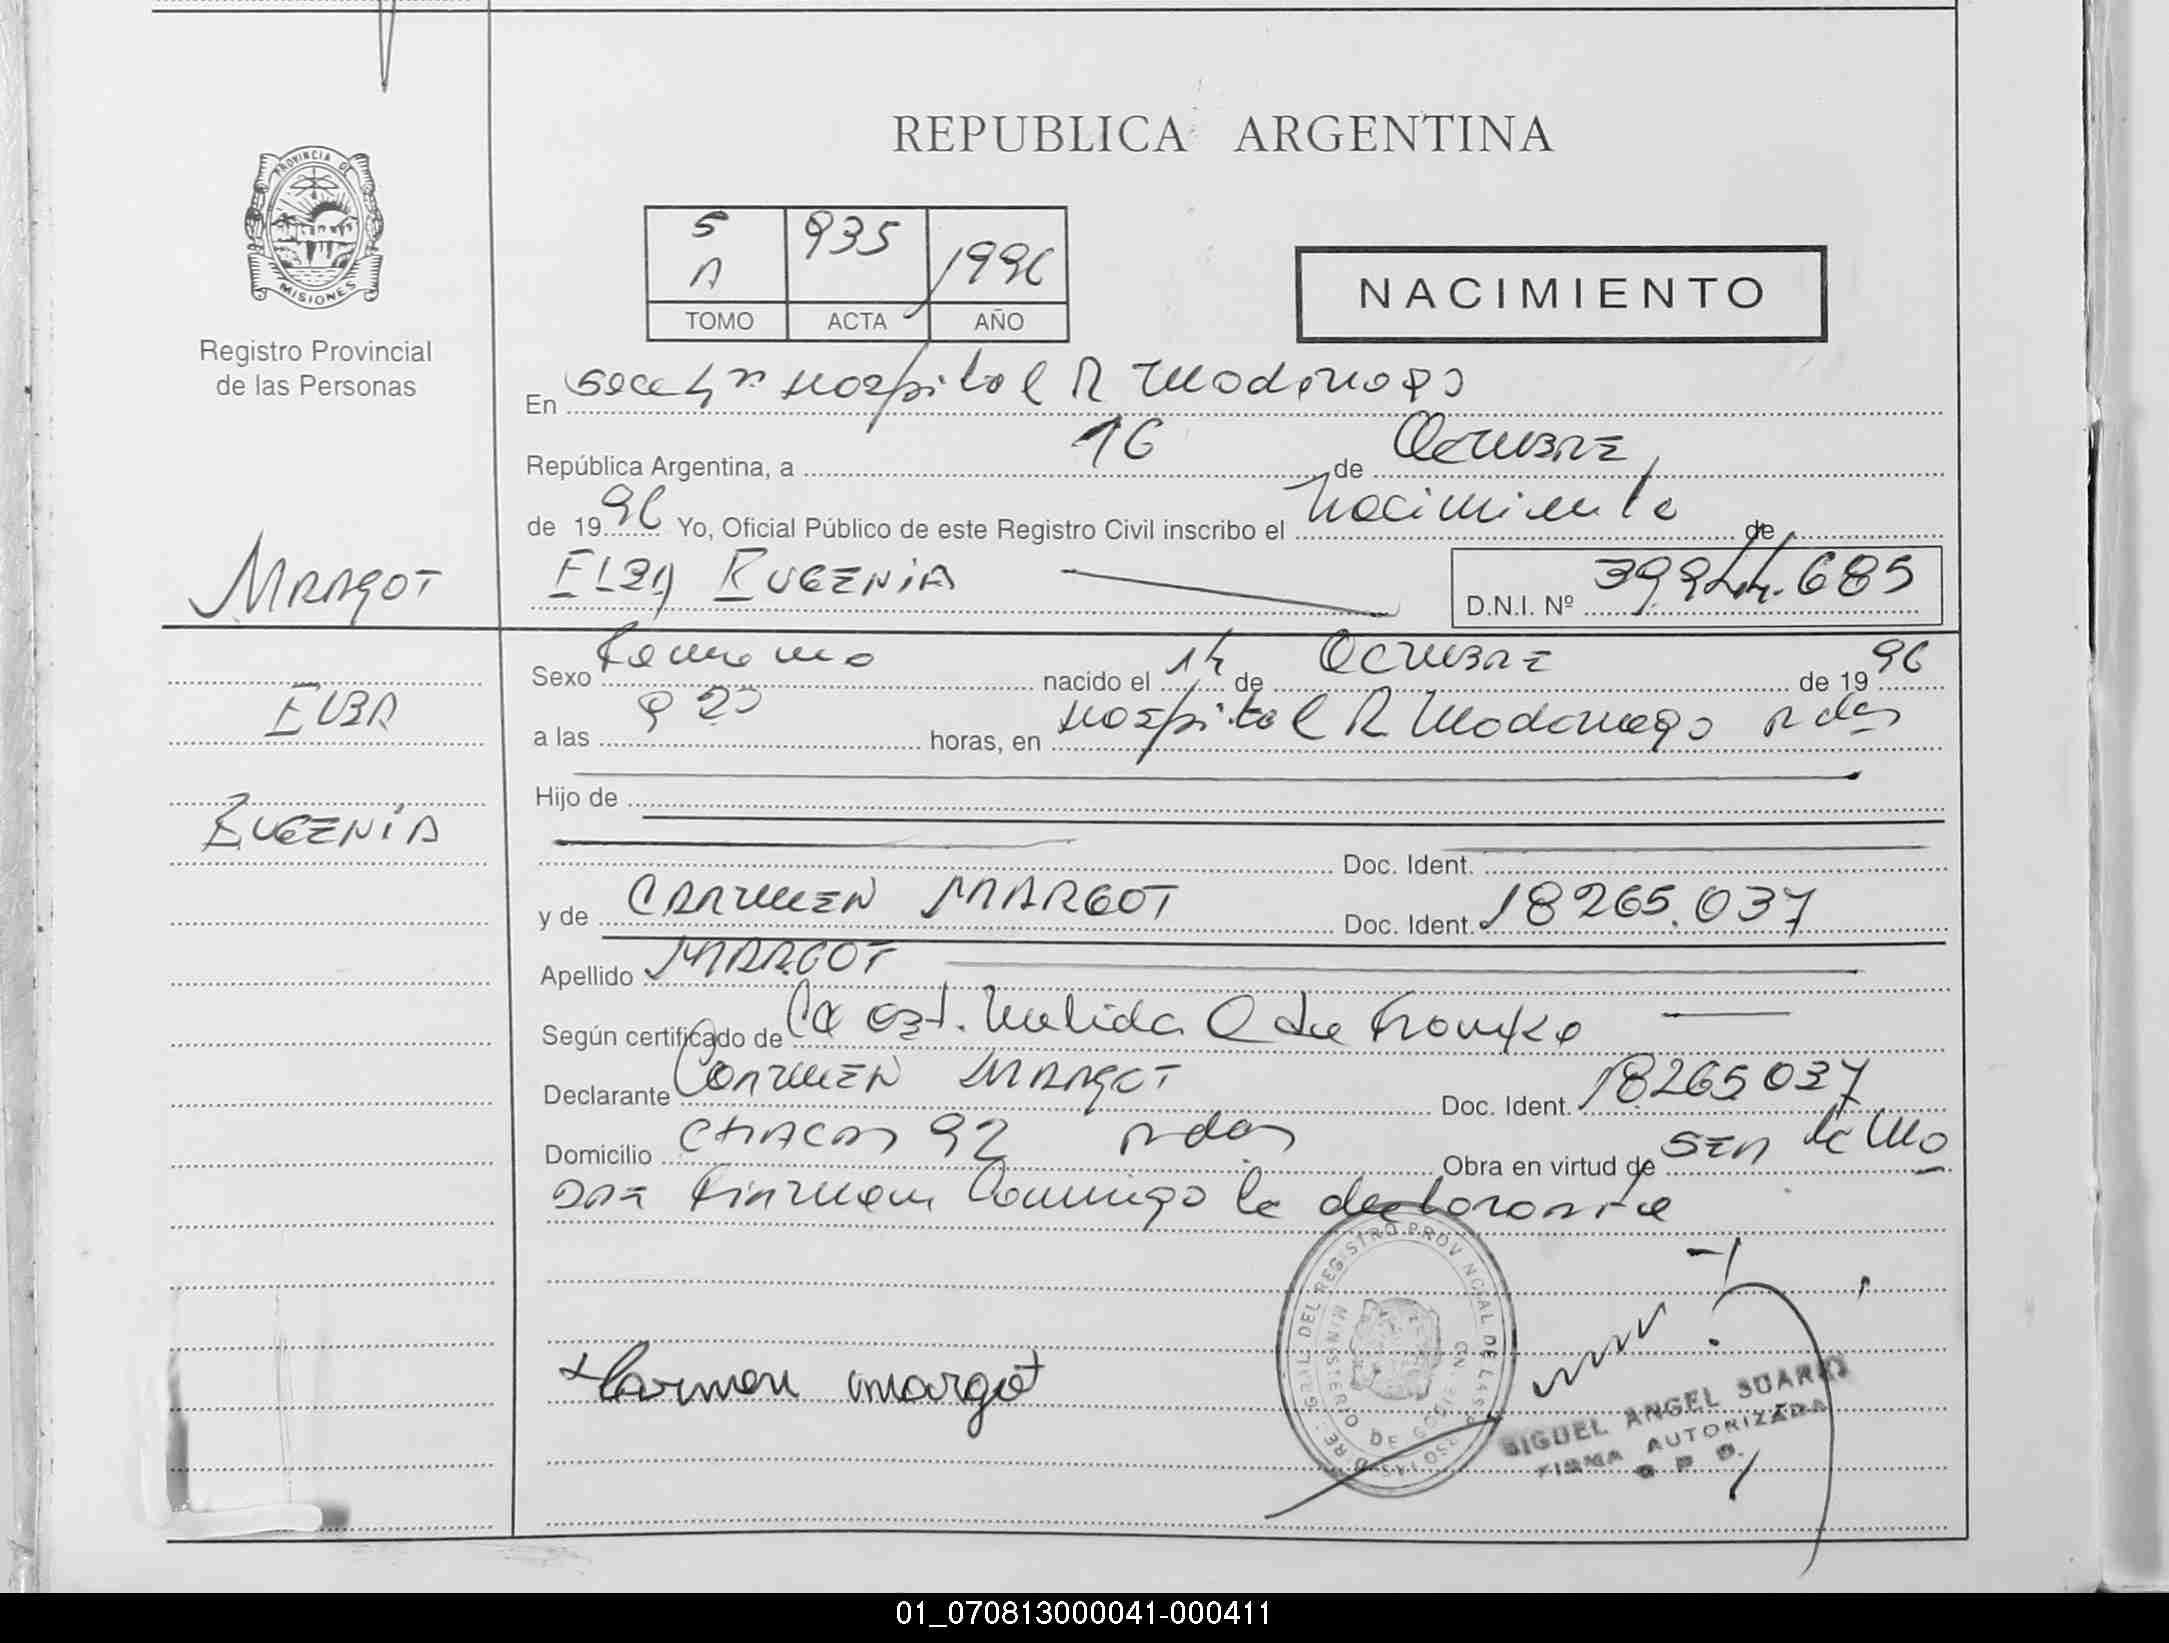 REPUBLICA ARGENTINA
PROVINCIA DE
MISIONES
Registro Provincial
de las Personas
5 A 935 1996
TOMO ACTA AÑO
NACIMIENTO
En Hospital R Madariaga
República Argentina, a 16 de Octubre
de 1996 Yo, Oficial Público de este Registro Civil inscribo el Nacimiento de
MARGOT
ELBA EUGENIA
D.N.I. Nº 39.944.685
Sexo Femenino nacido el 14 de Octubre de 1996
ELBA
a las 9 20 horas, en Hospital R Madariaga Pdas
Hijo de
EUGENIA
Doc. Ident.
y de CARMEN MARGOT Doc. Ident. 18265.037
Apellido MARGOT
Según certificado de La obst. Q de
Declarante CARMEN MARGOT Doc. Ident. 18265037
Domicilio CHACAS 92 Pdas Obra en virtud de SER la Ma
DRE Firman Conmigo la declarante
Carmen margot
MIGUEL ANGEL SUAREZ
FIRMA AUTORIZADA
01_070813000041-000411